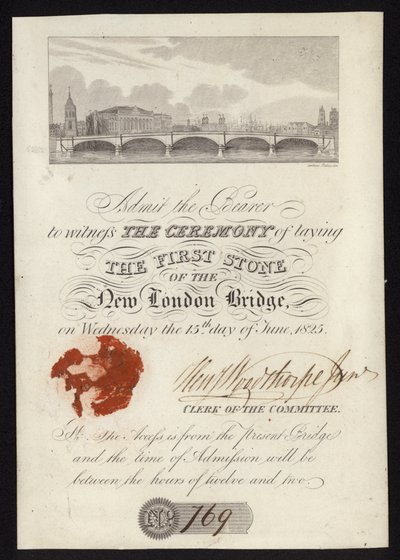 Admit the Bearer
to witness THE CEREMONY of laying
THE FIRST STONE
OF THE
New London Bridge,
on Wednesday the 15th day of June, 1825.
Heny Woodthorpe Junr
CLERK OF THE COMMITTEE.
NB. The Access is from the present Bridge
and the time of Admission will be
between the hours of twelve and two
No. 769